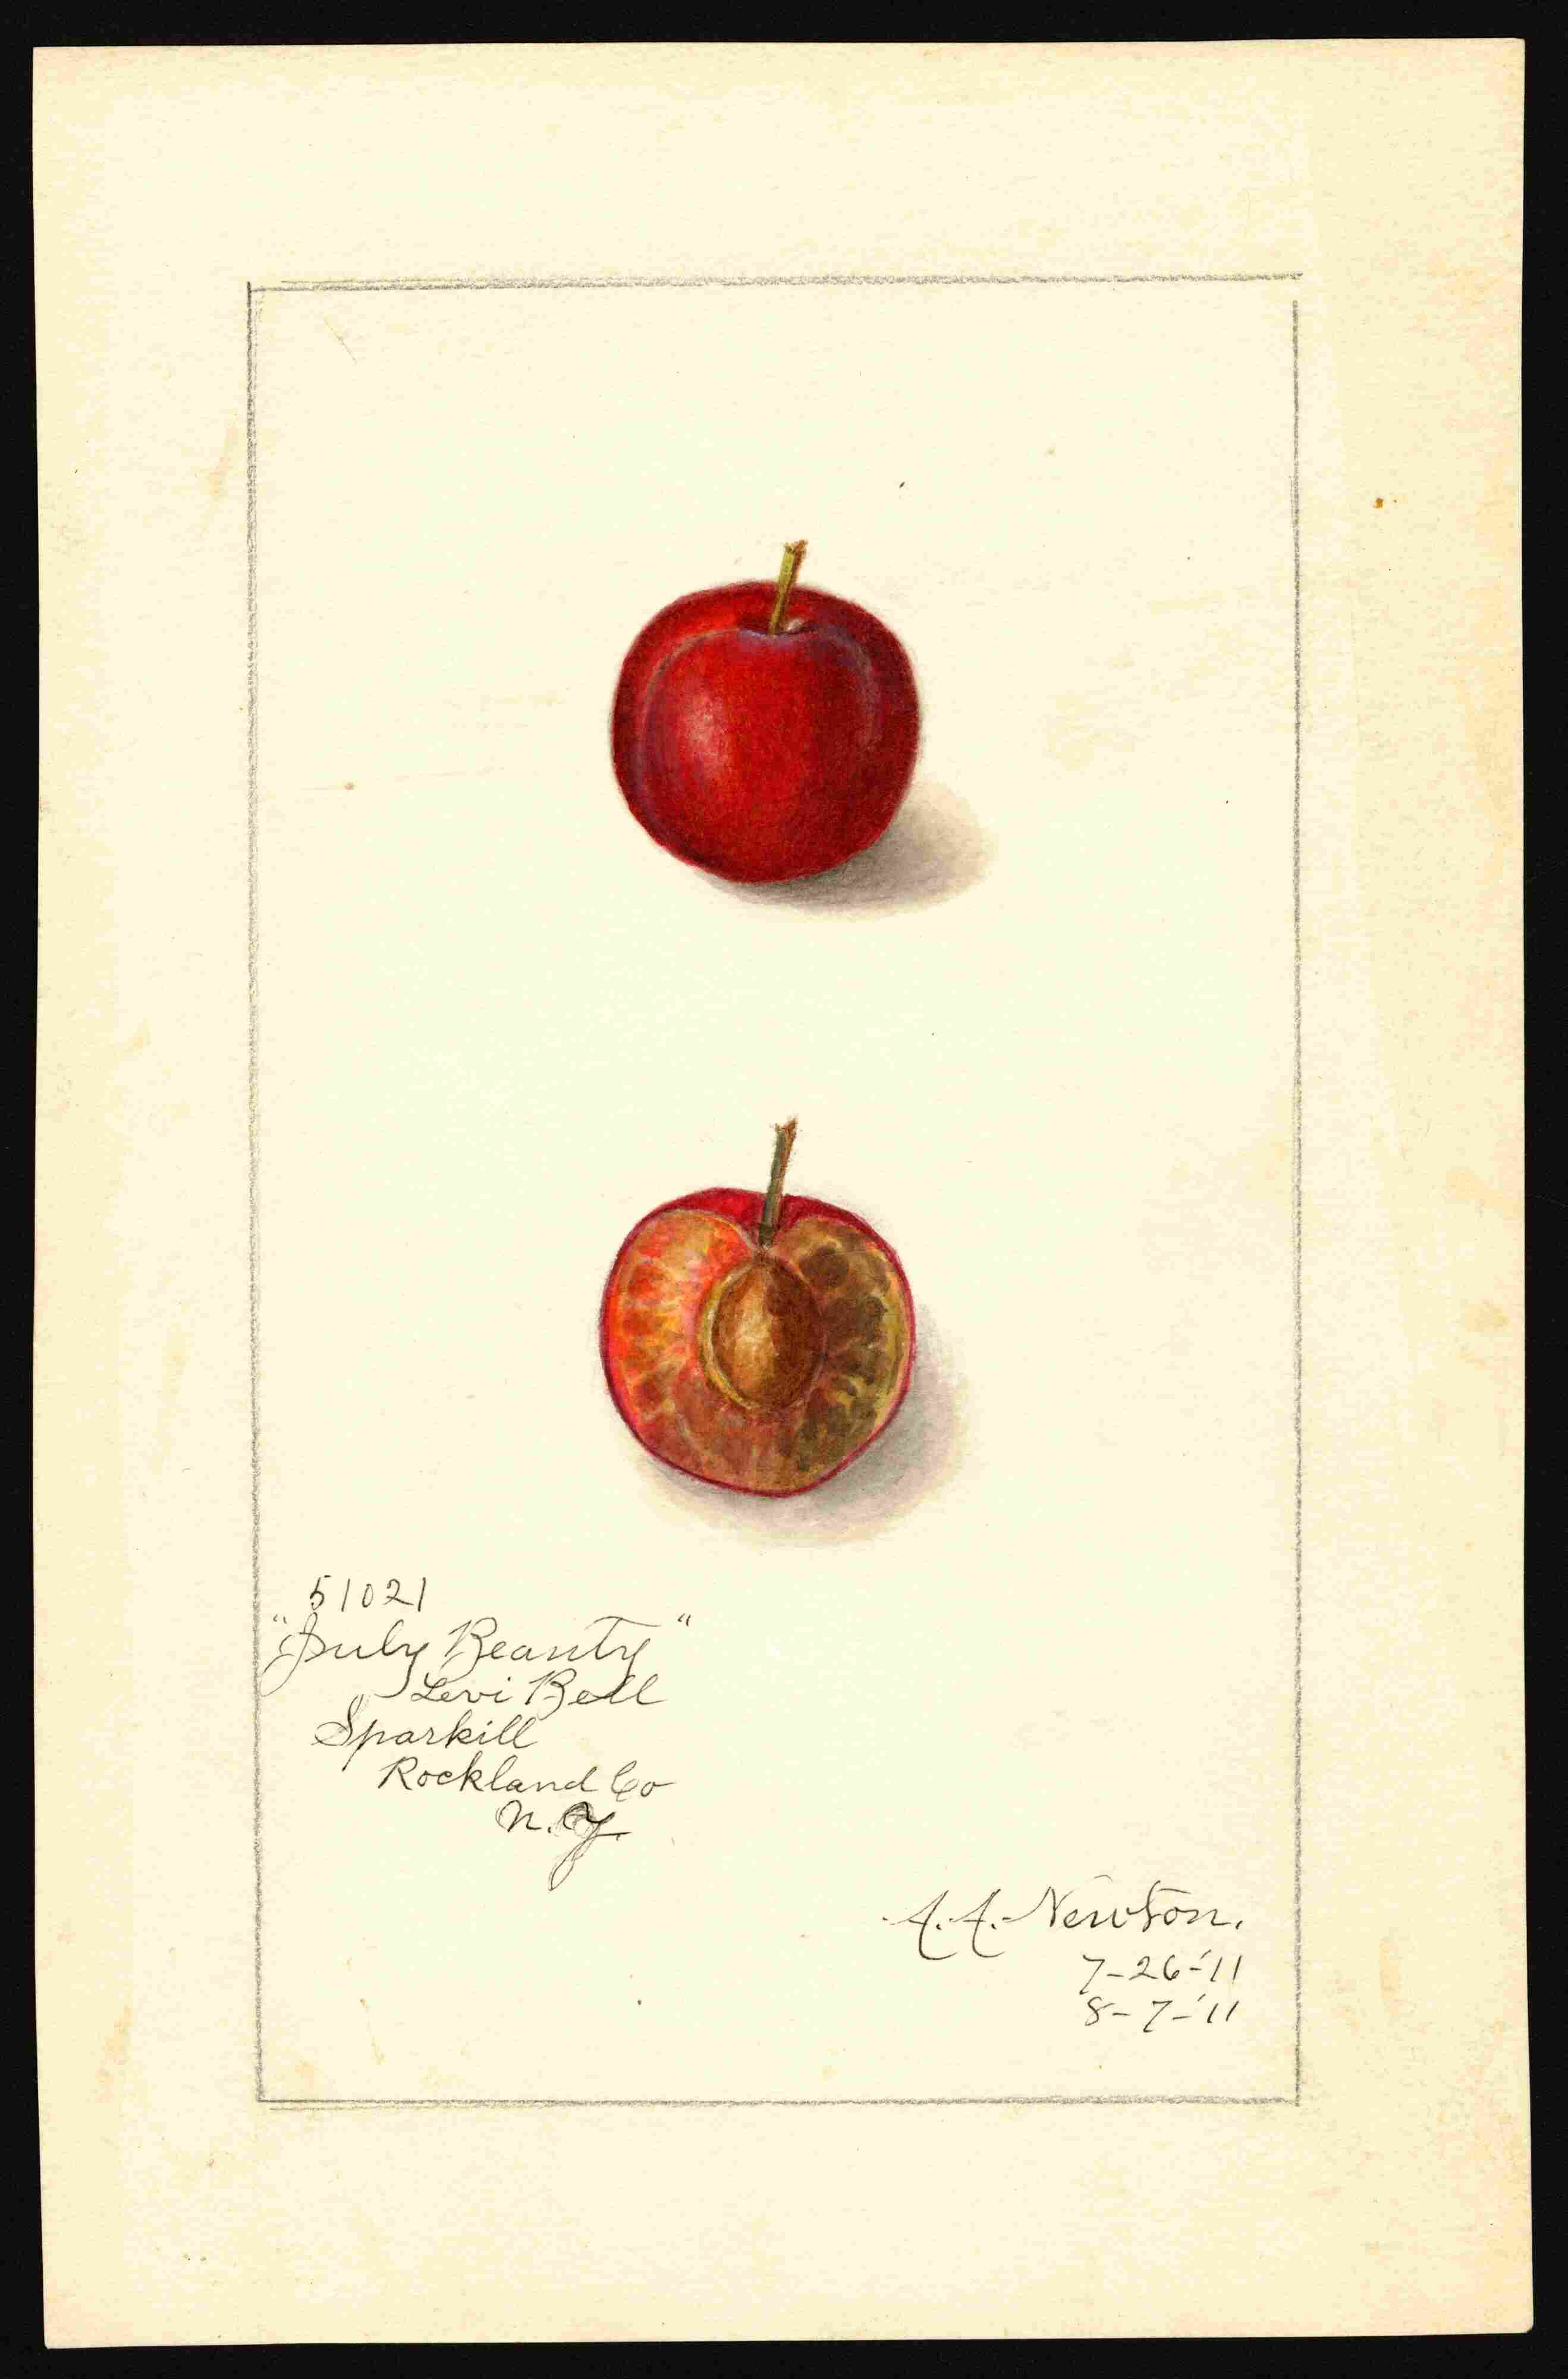 51021
"July Beauty"
Levi Bell
Sparkill
Rockland Co
N.Y.
A.A. Newton.
7-26-'11
8-7-'11